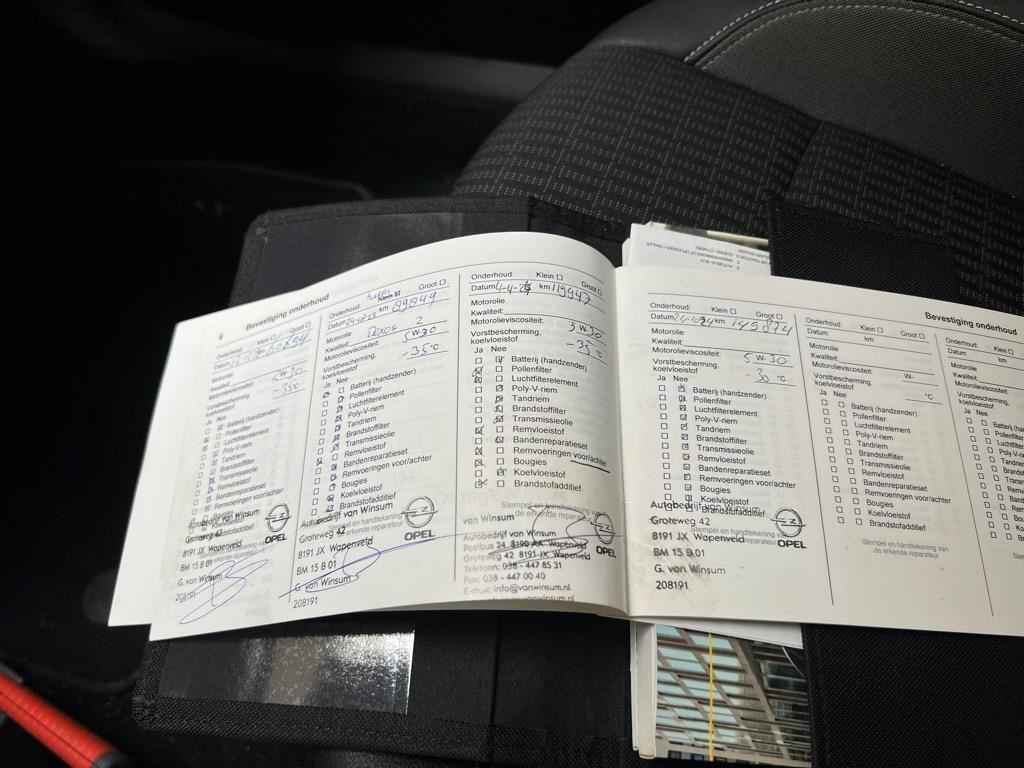 Bevestiging onderhoud
Onderhoud Klein Groot
Datum km
Motorolie
Kwaliteit:
Motorolieviscositeit: 5W30
Vorstbescherming, koelvloeistof -35°C
Ja Nee
Batterij (handzender)
Pollenfilter
Luchtfilterelement
Poly-V-riem
Tandriem
Brandstoffilter
Transmissieolie
Remvloeistof
Bandenreparatieset
Remvoeringen voor/achter
Bougies
Koelvloeistof
Brandstofadditief
Autobedrijf van Winsum
Groteweg 42
8191 JX Wapenveld
BM 15 B 01
G. van Winsum
OPEL
Onderhoud Klein Groot
Datum km 89849
Motorolie
Kwaliteit: 5W30
Motorolieviscositeit:
Vorstbescherming, koelvloeistof -35°C
Ja Nee
Batterij (handzender)
Pollenfilter
Luchtfilterelement
Poly-V-riem
Tandriem
Brandstoffilter
Transmissieolie
Remvloeistof
Bandenreparatieset
Remvoeringen voor/achter
Bougies
Koelvloeistof
Brandstofadditief
Stempel en handtekening van de erkende reparateur
Autobedrijf van Winsum
Groteweg 42
8191 JX Wapenveld
BM 15 B 01
G. van Winsum
208191
OPEL
Onderhoud: Klein Groot
Datum km 119947
Motorolie
Kwaliteit:
Motorolieviscositeit: 5W30
Vorstbescherming, koelvloeistof -35°C
Ja Nee
Batterij (handzender)
Pollenfilter
Luchtfilterelement
Poly-V-riem
Tandriem
Brandstoffilter
Transmissieolie
Remvloeistof
Bandenreparatieset
Remvoeringen voor/achter
Bougies
Koelvloeistof
Brandstofadditief
Stempel en handtekening van de erkende reparateur
van Winsum
Autobedrijf van Winsum
Postbus 24 8190 AA Wapenveld
Groteweg 42 8191 JX Wapenveld
Telefoon: 038 - 447 85 31
Fax: 038 - 447 00 40
E-mail: info@vanwinsum.nl
OPEL
Onderhoud: Klein Groot
Datum km 145874
Motorolie
Kwaliteit:
Motorolieviscositeit: 5W-30
Vorstbescherming, koelvloeistof -30°C
Ja Nee
Batterij (handzender)
Pollenfilter
Luchtfilterelement
Poly-V-riem
Tandriem
Brandstoffilter
Transmissieolie
Remvloeistof
Bandenreparatieset
Remvoeringen voor/achter
Bougies
Koelvloeistof
Brandstofadditief
Stempel en handtekening van de erkende reparateur
Autobedrijf van Winsum
Groteweg 42
8191 JX Wapenveld
BM 15 B 01
G. van Winsum
208191
OPEL
Bevestiging onderhoud
Onderhoud: Klein Groot
Datum km
Motorolie
Kwaliteit:
Motorolieviscositeit: W-
Vorstbescherming, koelvloeistof °C
Ja Nee
Batterij (handzender)
Pollenfilter
Luchtfilterelement
Poly-V-riem
Tandriem
Brandstoffilter
Transmissieolie
Remvloeistof
Bandenreparatieset
Remvoeringen voor/achter
Bougies
Koelvloeistof
Brandstofadditief
Stempel en handtekening van de erkende reparateur
Onderhoud:
Datum km
Motorolie
Kwaliteit:
Motorolieviscositeit:
Vorstbescherming, koelvloeistof
Ja Nee